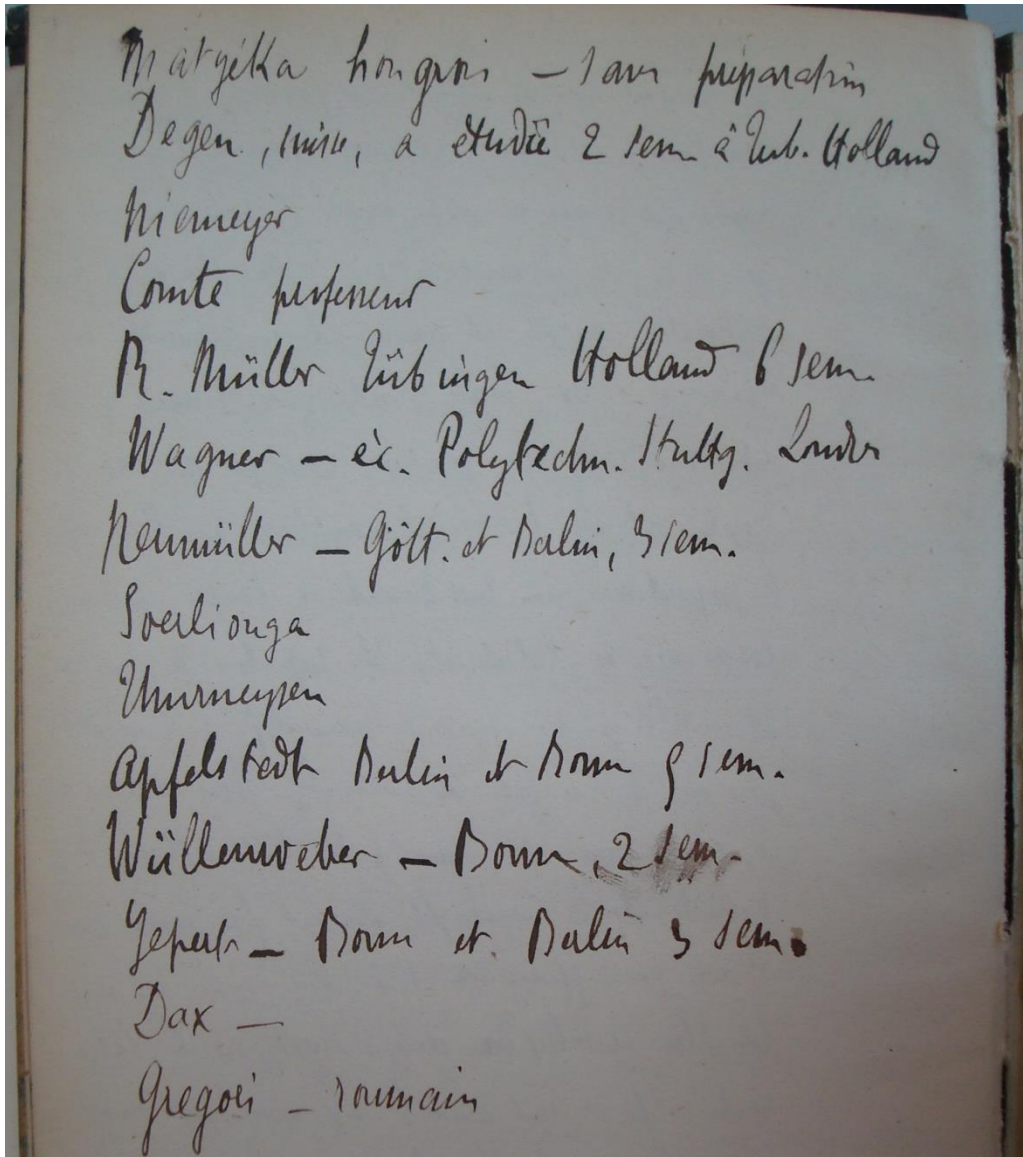 Matyéka hongrois – sans préparation
Degen, suisse, a étudié 2 sem. à Tub. Holland
Niemeyer
Comte professeur
R. Müller Tübingen Holland 6 sem.
Wagner – éc. Polytechn. Stuttg. Londres
Neumüller – Gött. et Berlin, 3 sem.
Thurneysen
Apfelstedt Berlin et Bonn 5 sem.
Wüllenweber – Bonn, 2 sem.
– Bonn et Berlin 3 sem.
Dax –
Gregori – roumain